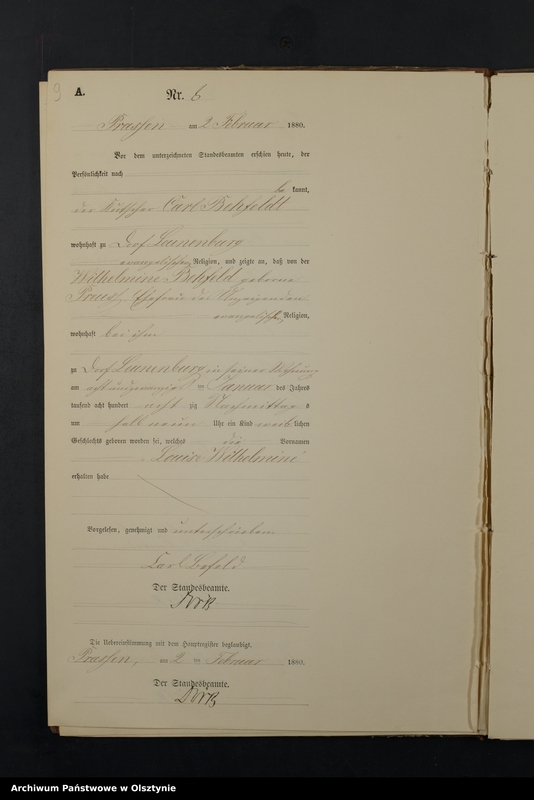 9
A.
Nr. 6
Prassen am 2 Februar 1880.
Vor dem unterzeichneten Standesbeamten erschien heute, der
Persönlichkeit nach
be kannt,
der Kutscher Carl Behfeldt
wohnhaft zu Dorf Leunenburg
evangelischer Religion, und zeigte an, daß von der
Wilhelmine Behfeld geborene
Preuss, Ehefrau des Anzeigenden
evangelischer Religion,
wohnhaft bei ihm
zu Dorf Leunenburg in seiner Wohnung
am acht und zwanzigsten Januar des Jahres
tausend acht hundert acht zig Nachmittags
um halb neun Uhr ein Kind weib lichen
Geschlechts geboren worden sei, welches die Vornamen
Louise Wilhelmine
erhalten habe
Vorgelesen, genehmigt und unterschrieben
Carl Befeld
Der Standesbeamte.
Die Uebereinstimmung mit dem Hauptregister beglaubigt.
Prassen, am 2 ten Februar 1880.
Der Standesbeamte.
Archiwum Państwowe w Olsztynie